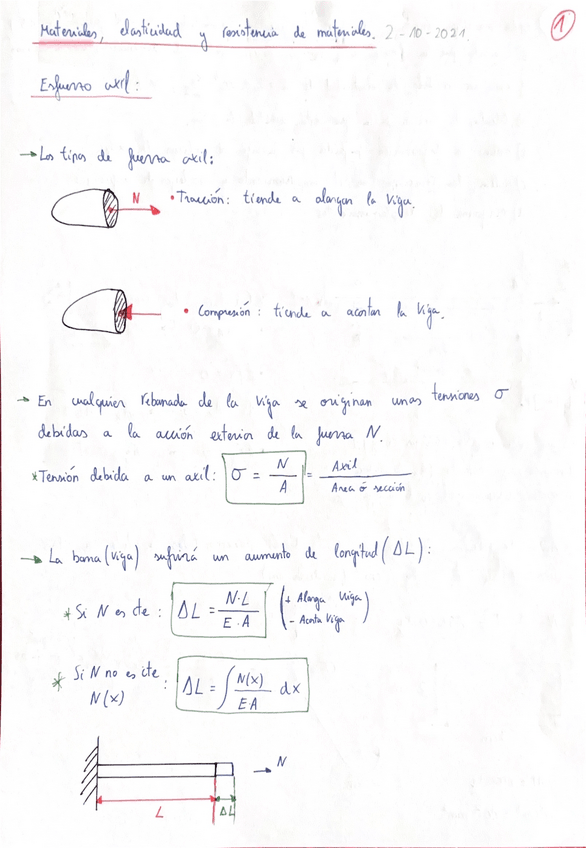 Materiales, elasticidad y resistencia de materiales. 2-10-2021.
1
Esfuerzo axil:
→ Los tipos de fuerza axil:
N
• Tracción: tiende a alargar la viga.
• Compresión: tiende a acortar la viga.
→ En cualquier rebanada de la viga se originan unas tensiones σ
debidas a la acción exterior de la fuerza N.
* Tensión debida a un axil: σ = N/A = Axil/Area ó sección
→ La barra (viga) sufrirá un aumento de longitud (ΔL):
* Si N es cte: ΔL = N·L/E·A (+ Alarga viga
- Acorta viga)
* Si N no es cte
N(x) : ΔL = ∫ N(x)/EA dx
N
L ΔL